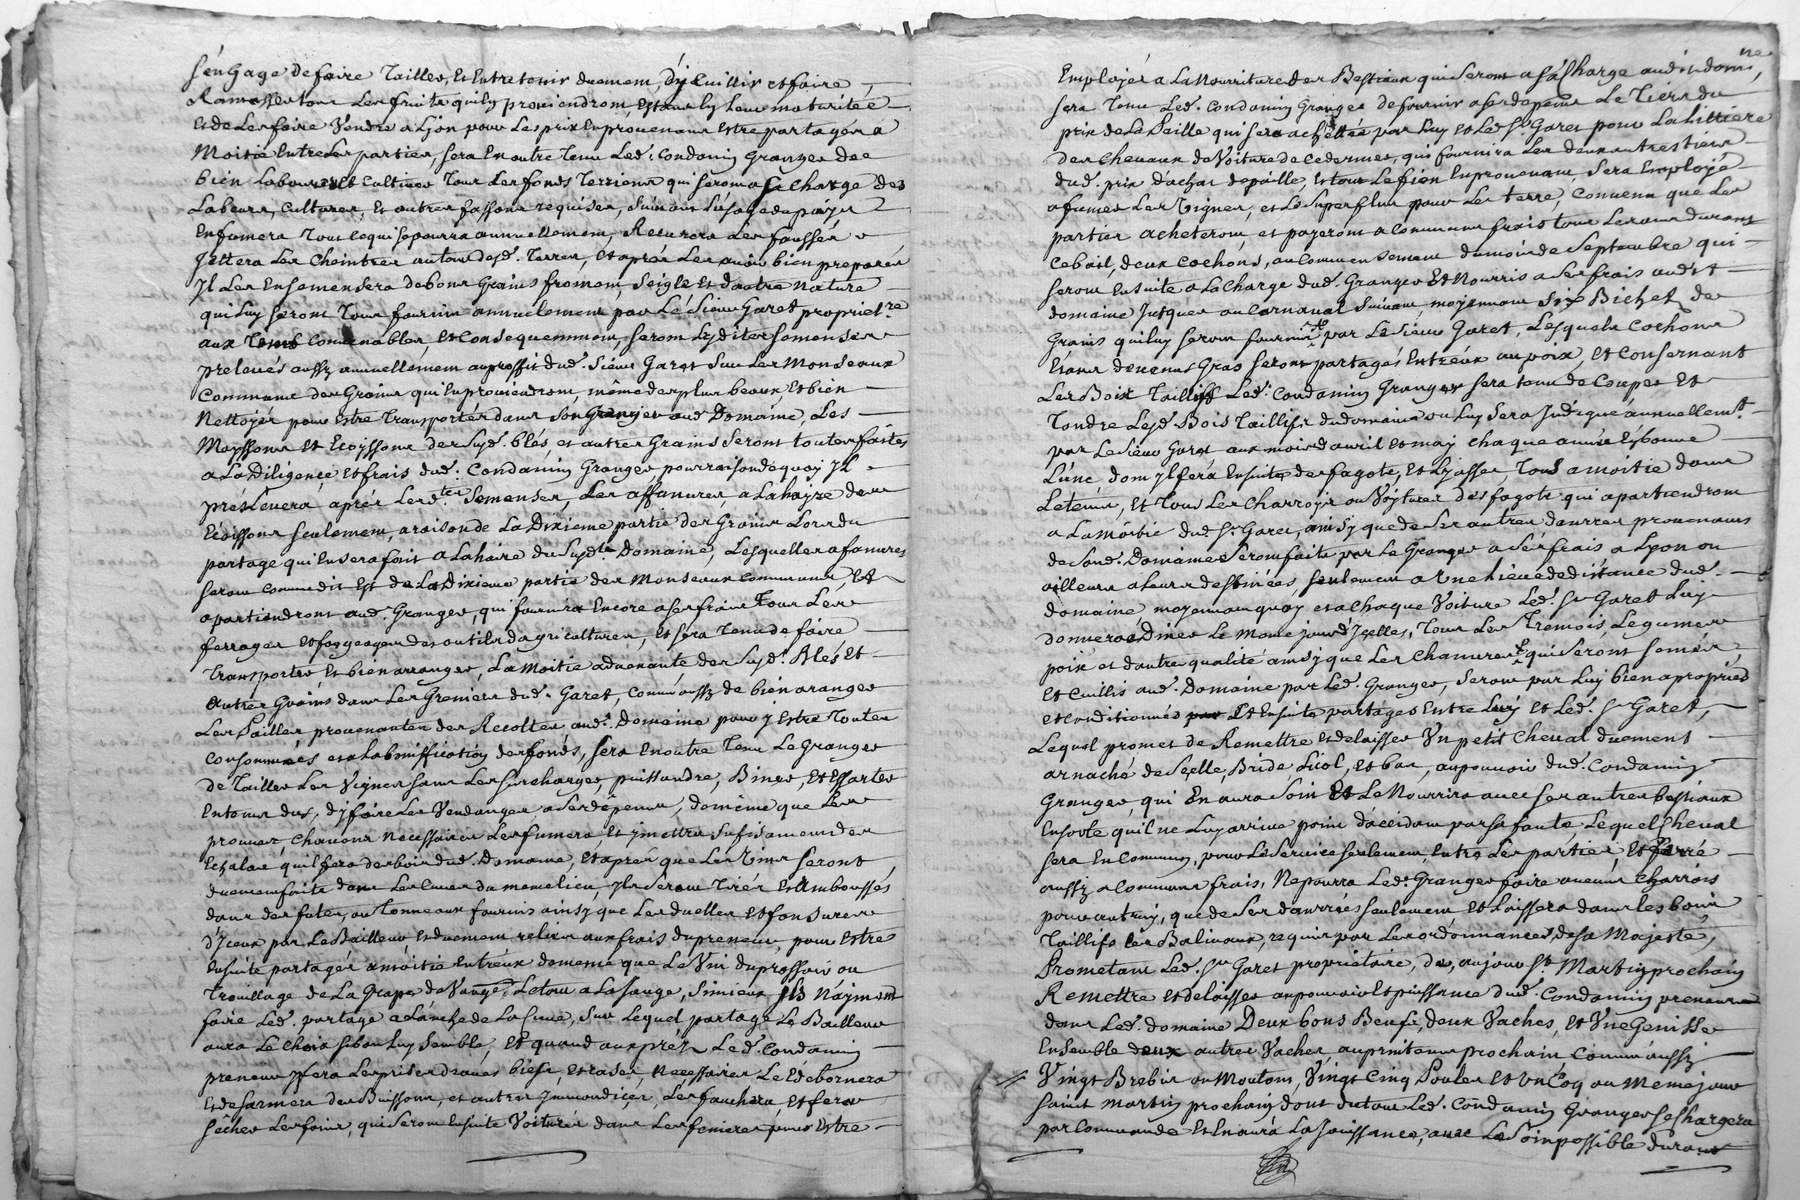 s'engage de faire Tailler, Et Entretenir duement, d'y Cuillir et faire
Ramasser tous Les fruits quily proviendront, Estants en Leur maturitée
Et de Les faire Vendre a Lyon pour Les prix En provenants Estre partagés a
Moitié Entre Les parties, sera En outre Tenu Led. Condamin Granger de
bien Labourer et Cultiver Tous Les fonds Terriers qui seront a sa Charge des
Labeurs, Cultures, Et autres fassons requises, suivant L'usage du païs
Enfumera Tout ce qui se pourra annuellement, Recurera Les fossés
Jettera Les Cheintres autour desd. Terres, Et aprés Les avoir bien preparés
Jl Les Ensemensera de bons Grains froment, Seigle et d'autre nature
qui Luy seront Tous fournis annuelement par Le Sieur Garet propriet.re
aux Tems Convenables, Et Consequemment, seront Lesdites semenses
prelevés aussy annuellement au proffit dud. Sieur Garet Sur Les Monseaux
Communs des Grains qui En proviendront, même des plus beaux, Et bien
Nettoyés pour Estre Transportés dans Son Grenier aud. Domaine, Les
Moyssons Et Ecoyssons des Susd. blés, et autres Grains Seront toutes faites
a La Diligence Et frais dud. Condamin Granger, pour raison de quoy Jl
préslevera aprés Lesd.tes Semenses, Les affanures, a La hayre dans
Ecossons seulement, a raison de La Dixieme partie des Grains Lors du
partage qui En sera fait a La haire du Susd.t Domaine, Lesquelles afanures
seront comme dit Est de La Dixieme partie des Monseaux communs Et
apartiendront aud. Granger, qui fournira Encore a ses frais Tous Les
ferrages Et forgeages des outils d'agricultures, Et sera Tenu de faire
Transporter Et bien arranger, La Moitié advenante des Susd. Blés Et
autres Grains dans Les Greniers dud. Garet, Comme aussy de bien aranger
Les Pailles provenantes des Recoltes aud. Domaine pour y Estre Toutes
Consommées et a La bonification des fonds, sera En outre Tenu Le Granger
de Tailler Les Vignes sans Les surcharger, puissandre, Biner, Et Essarter
En tems dus, d'y faire Les Vendanges, a Ses dépens, de même que Les
provins, Chavons Necessaires Les fumera Et y mettra Sufisament des
Echalas qu'il fera des bois dud. Domaine, Et aprés que Les Vins Seront
duement faits dans Les Cuves du meme lieu, Ils Seront Tirés Et Emboussés
dans des futes, ou Tonneaux fournis ainsy que Les duelles Et fonsures
d'Jceux par Le Bailleur Et duement reliers aux frais du preneur, pour Estre
Ensuite partagés a moitié Entreux de meme que Le Vin du pressoir ou
Trouillage de La Grape de Vange, Le tout a La Jauge, Si mieux Jls N'ayment
faire Led. partage a L'anche de La Cuve, Sur Lequel partage Le Bailleur
aura Le Choix si bon Luy Semble, Et quand aux prés, Led. Condamin
preneur y fera Les prises d'eaux biefs, Et rases, Necessaires Le Etebornera
Et desarmera des Buissons, et autres Jmmondices, Les fauchera, Et fera
sécher Les foins, qui Seront Ensuite Voiturés dans Les fenieres pour Estre
Employés a La Nourriture des Bestiaux qui Seront a Sa Charge audit domaine,
sera Tenu Led. Condamin Granger de fournir a ses depens Le Tiers du
prix de La Paille qui sera achettée par Luy Et Led. Sr Garet pour La littiére
des chevaux de Voiture de ce dernier, qui fournira Les deux autres tiers
dud. prix d'achat de paille, Et tout Le fien En provenant, Sera Employé
a fumer Les Vignes, et Le superflus pour Les terre, Convenu que Les
parties acheteront et payeront a communs frais tous Les ans durant
ce bail, deux cochons, au Commensement du mois de Septembre qui
seront Ensuite a La Charge dud. Granger Et Nourris a Ses frais audit
domaine Jusques au Carnaval Suivant, moyennant Six Bichet de
Grains qui luy seront fournis par Le Sieur Garet, Lesquels Cochons
Etants devenus Gras Seront partagés Entreux au poix, Et Consernant
Les Bois Taillifs Led. Condamin Granger sera tenu de Couper Et
Tondre Lesd. Bois Taillifs du domaine ou Luy Sera Judiqué annuellem.t
par Le Sieur Garet aux mois d'avril et may chaque année En bonne
Lune, dont Jl fera Ensuite des fagots, Et Lyasser Tous a moitié dans
Le tems, Et Tous Les Charroyés ou Voitures des fagots qui apartiendront
a La moitié dud. Sr Garet, ainsy que de Ses autres danrées provenants
de Sond. Domaine seront faits par Le Granger a Ses frais a Lyon ou
ailleurs a Leurs destinées, seulement a Une lieue de distance dud.
domaine moyennant quoy et a chaque Voiture Led. Sr Garet Luy
donnera a Diner Le Meme jour d'Jcelles, Tous Les Tremois, Legumes
poix et d'autre qualité ainsy que Les Chanvres qui Seront Semés
Et Cuillis aud. Domaine par Led. Granger, Seront par Luy bien apropriés
et conditionnés Et Ensuite partagés Entre Luy Et Led. Sr Garet,
Lequel promet de Remettre Et delaisser Un petit Cheval duement
arnaché de Selle, Bride Licol, Et bas, au pouvoir dud. Condamin
Granger, qui En aura Soin Et Le Nourrira avec Ses autres bestiaux
En sorte qu'il ne Luy arrive point d'accidant par sa faute, Lequel Cheval
sera En Commun, pour Le Service seulement, Entre Les parties, Et ferré
aussy a Communs frais, Ne pourra Led. Granger faire aucuns Charrois
pour autruy, que de Ses danrées seulement Et Laissera dans les bois
Taillifs Les Baliveaux, requis par Les ordonnances, de sa Majesté,
Prometant Led. Sr Garet propriétaire, de, au jour St Martin prochain
Remettre Et delaisser au pouvoir Et puissance dud. Condamin preneur
dans Led. domaine Deux bons Beufs, deux Vaches, Et Une Genisse
Ensemble deux autres Vaches, au printems prochain Comm'aussy
Vingt Brebis ou Moutons, Vingt Cinq Poules Et Un Coq au Meme jour
saint Martin prochain, dont du tout Led. Condamin Granger Se Chargera
par Commande Et En aura La Jouissance, avec Le Soin possible durant